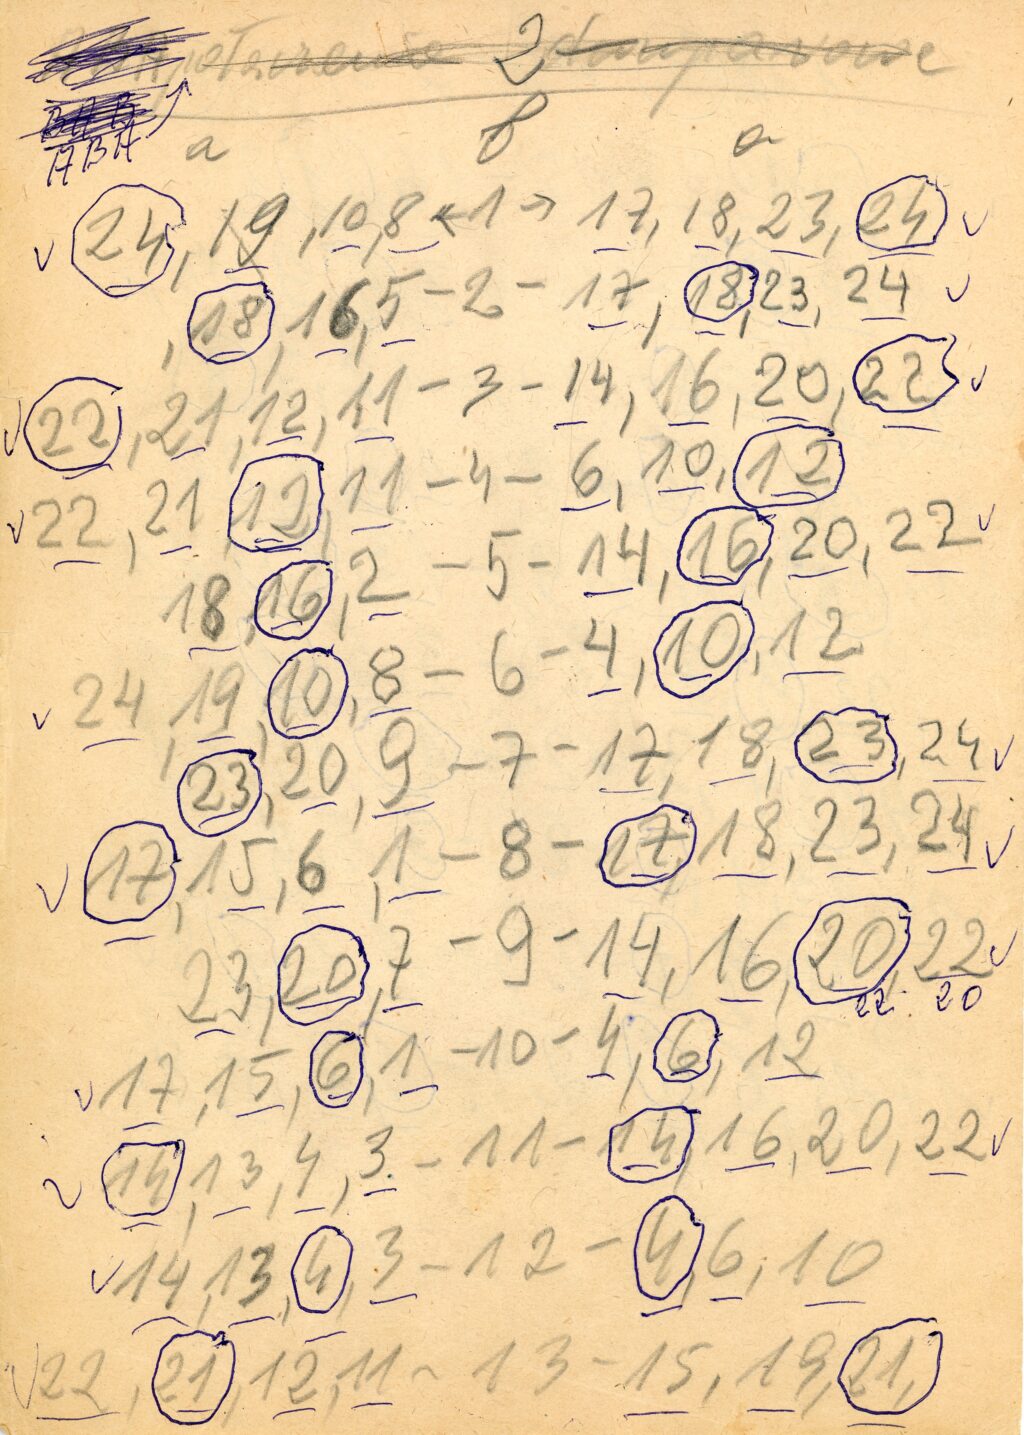 2
BAB
ABA
a b a
24, 19, 10, 8 ← 1 → 17, 18, 23, 24
, 18, 16, 5 - 2 - 17, 18, 23, 24
22, 21, 12, 11 - 3 - 14, 16, 20, 22
22, 21, 12, 11 - 4 - 6, 10, 12
18, 16, 2 - 5 - 14, 16, 20, 22
24, 19, 10, 8 - 6 - 4, 10, 12
, 23, 20, 9 - 7 - 17, 18, 23, 24
17, 15, 6, 1 - 8 - 17, 18, 23, 24
23, 20, 7 - 9 - 14, 16, 20, 22
22 20
17, 15, 6, 1 - 10 - 4, 6, 12
14, 13, 4, 3 - 11 - 14, 16, 20, 22
14, 13, 4, 3 - 12 - 4, 6, 10
22, 21, 12, 11 - 13 - 15, 19, 21,